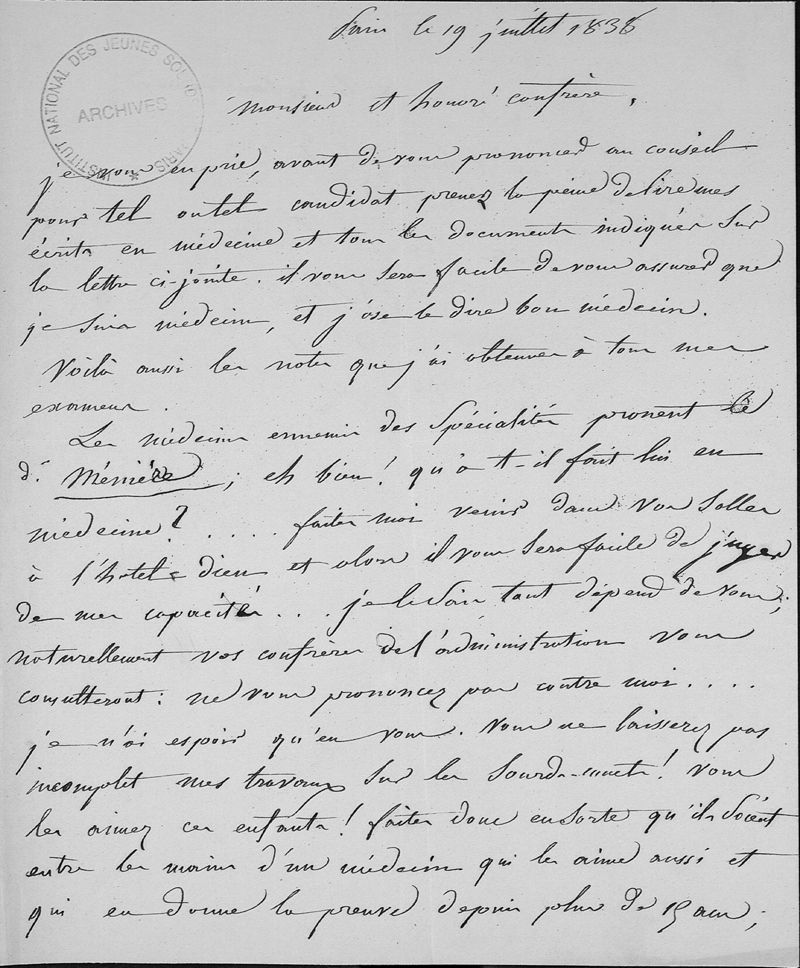 Paris le 19 juillet 1838
INSTITUT NATIONAL DES JEUNES SOURDS PARIS
ARCHIVES
Monsieur et honoré confrère,
je vous en prie, avant de vous prononcer au conseil
pour tel ou tel candidat prenez la peine de lire mes
écrits en médecine et tous les documents indiqués sur
la lettre ci-jointe. il vous sera facile de vous assurer que
je suis médecin, et j'ose le dire bon médecin.
Voilà aussi les notes que j'ai obtenues à tous mes
examens.
Les médecins ennemis des Spécialités pronent le
dr. Ménière ; eh bien ! qu'a t-il fait lui en
médecine ? ..... faites moi venir dans vos salles
à l'hotel-dieu et alors il vous sera facile de juger
de mes capacités ... je le sais tout dépend de vous ;
naturellement vos confrères de l'administration vous
consulteront : ne vous prononcez pas contre moi ....
je n'ai espoir qu'en vous. Vous ne laisserez pas
incomplet mes travaux sur les Sourds-muets ! Vous
les aimez ces enfants ! faites donc ensorte qu'ils soient
entre les mains d'un médecin qui les aime aussi et
qui en donne la preuve depuis plus de 15 ans ;